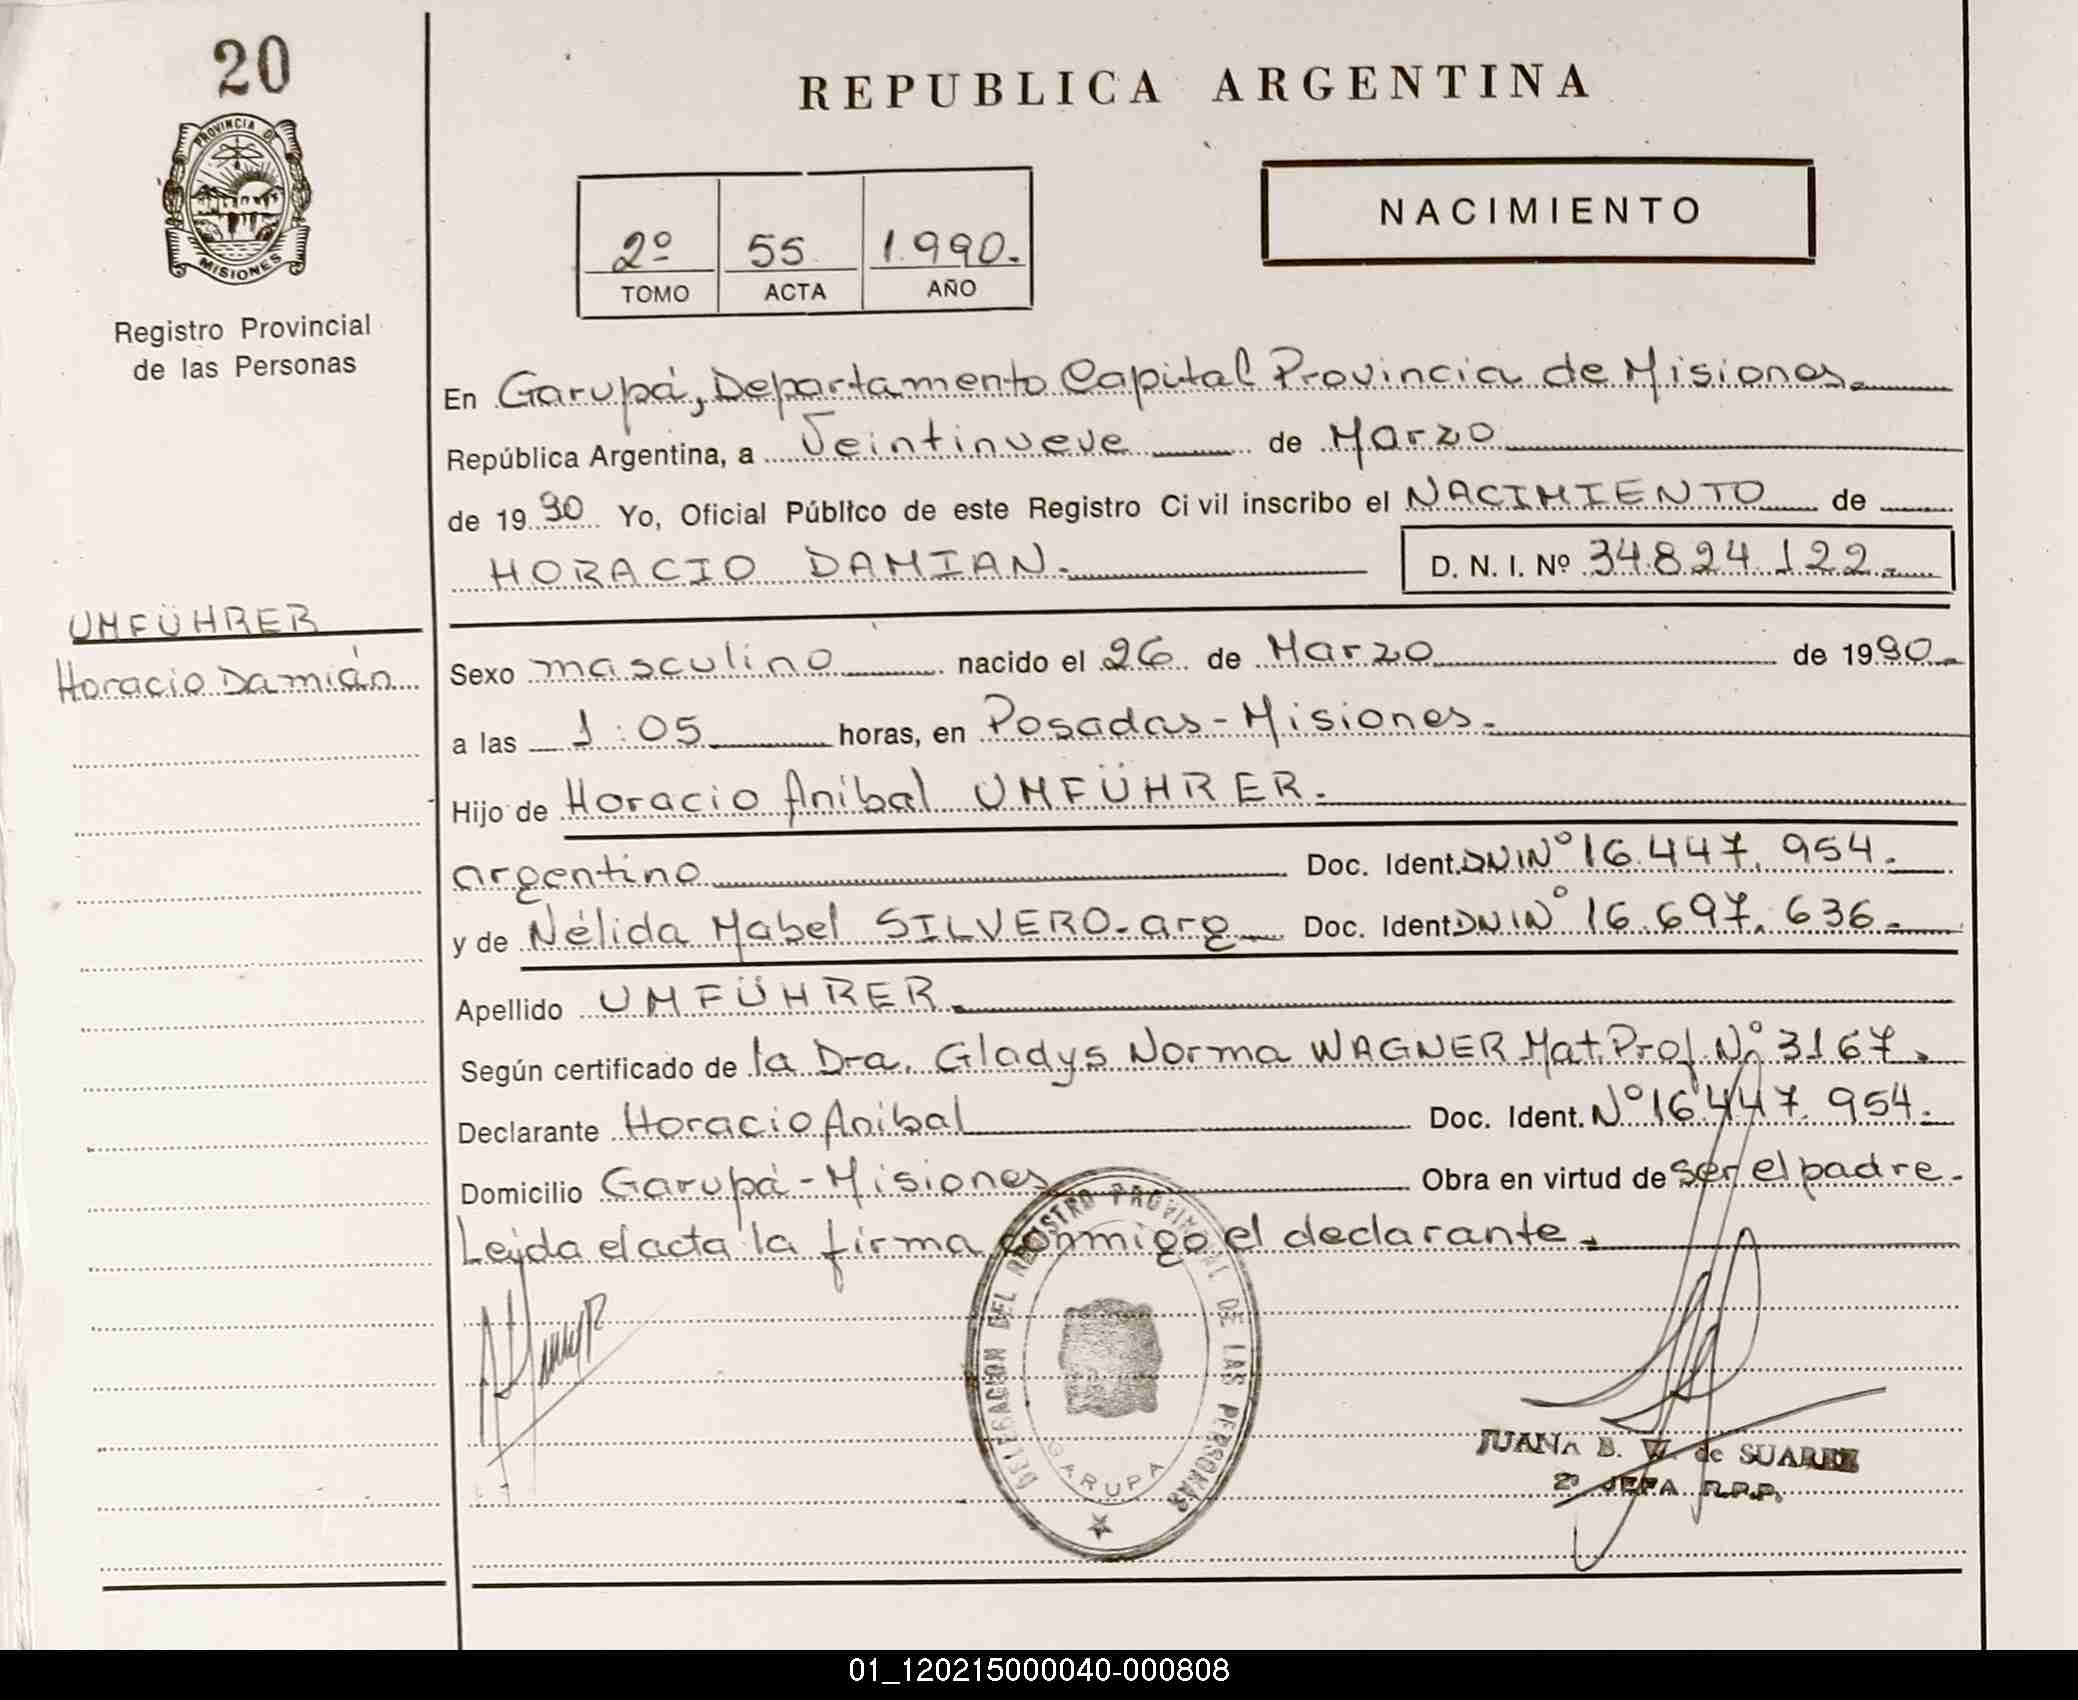 20
PROVINCIA DE
MISIONES
Registro Provincial
de las Personas
REPUBLICA ARGENTINA
2º 55 1.990.
TOMO ACTA AÑO
NACIMIENTO
En Garupá, Departamento Capital Provincia de Misiones.
República Argentina, a Veintinueve de Marzo
de 1990 Yo, Oficial Público de este Registro Civil inscribo el NACIMIENTO de
HORACIO DAMIAN.
D. N. I. Nº 34.824.122.
UMFÜHRER
Horacio Damián
Sexo masculino nacido el 26 de Marzo de 1990.
a las 1:05 horas, en Posadas - Misiones.
Hijo de Horacio Aníbal UMFÜHRER.
argentino Doc. Ident. DNI Nº 16.447.954.
y de Nélida Mabel SILVERO. arg Doc. Ident DNI Nº 16.697.636.
Apellido UMFÜHRER.
Según certificado de la Dra. Gladys Norma WAGNER Mat. Prof. Nº 3167.
Declarante Horacio Aníbal Doc. Ident. Nº 16.447.954.
Domicilio Garupá - Misiones Obra en virtud de ser el padre.
Leída el acta la firma conmigo el declarante.
DELEGACION DEL REGISTRO PROVINCIAL DE LAS PERSONAS
GARUPA
JUANA B. W. de SUAREZ
2º JEFA R.P.P.
01_120215000040-000808